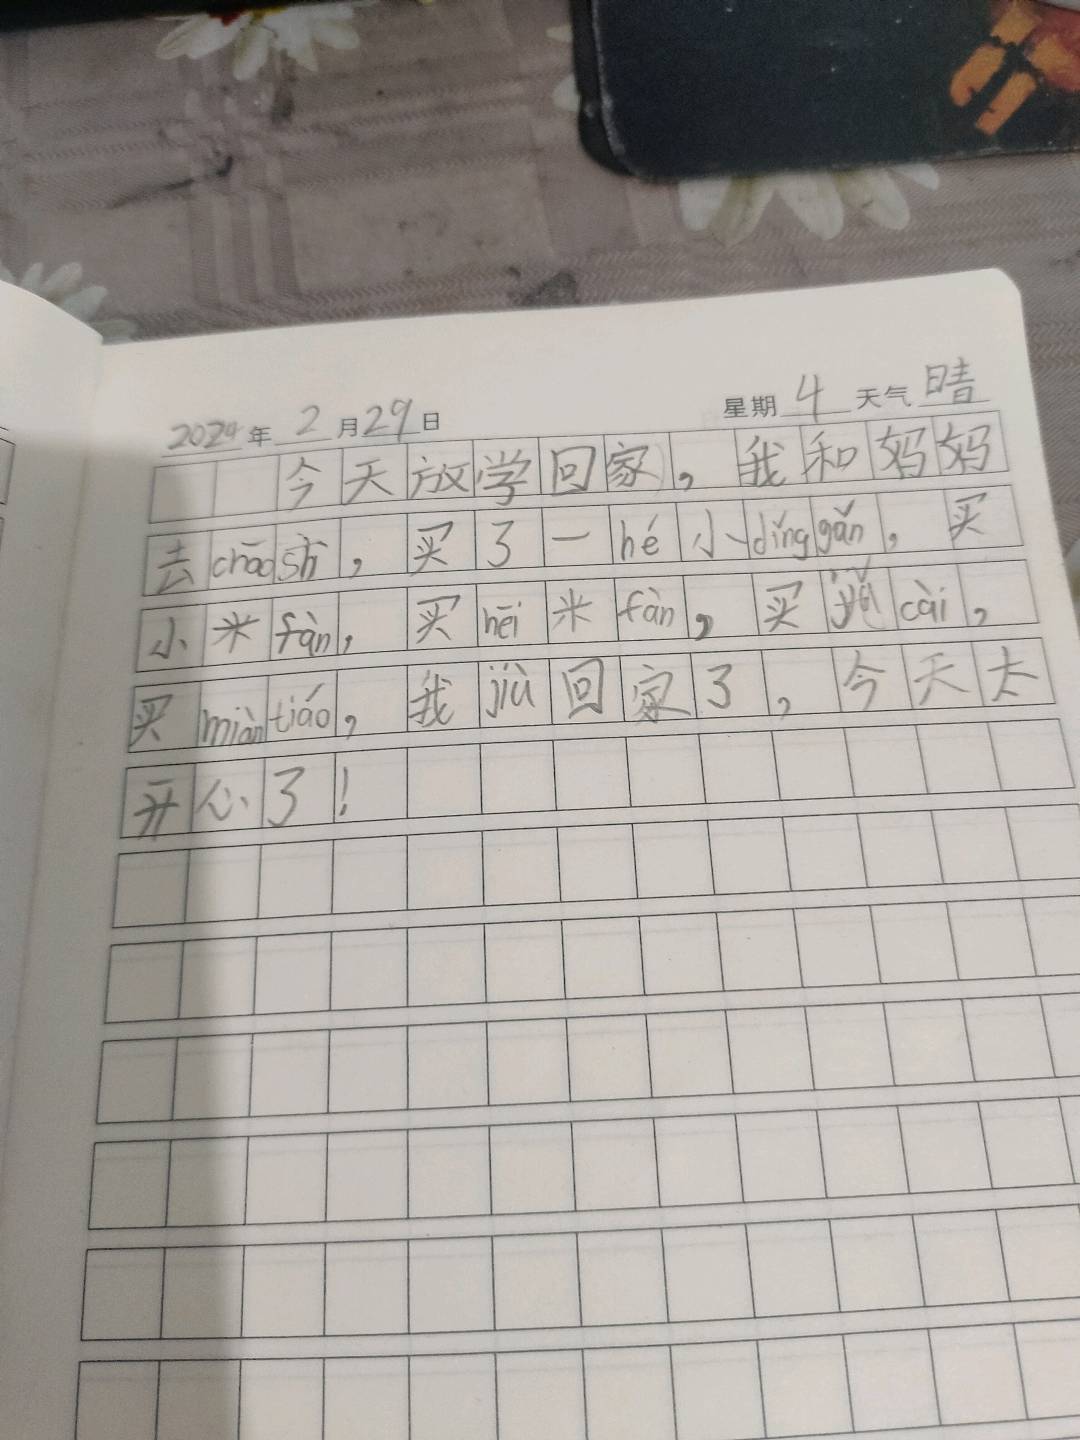 2024年 2 月29日 星期 4 天气 晴
今天放学回家，我和妈妈
去chāoshì，买了一hé小dǐnggǎn，买
小米fàn，买hēi米fàn，买 cài，
买miàntiáo，我jiù回家了，今天太
开心了！